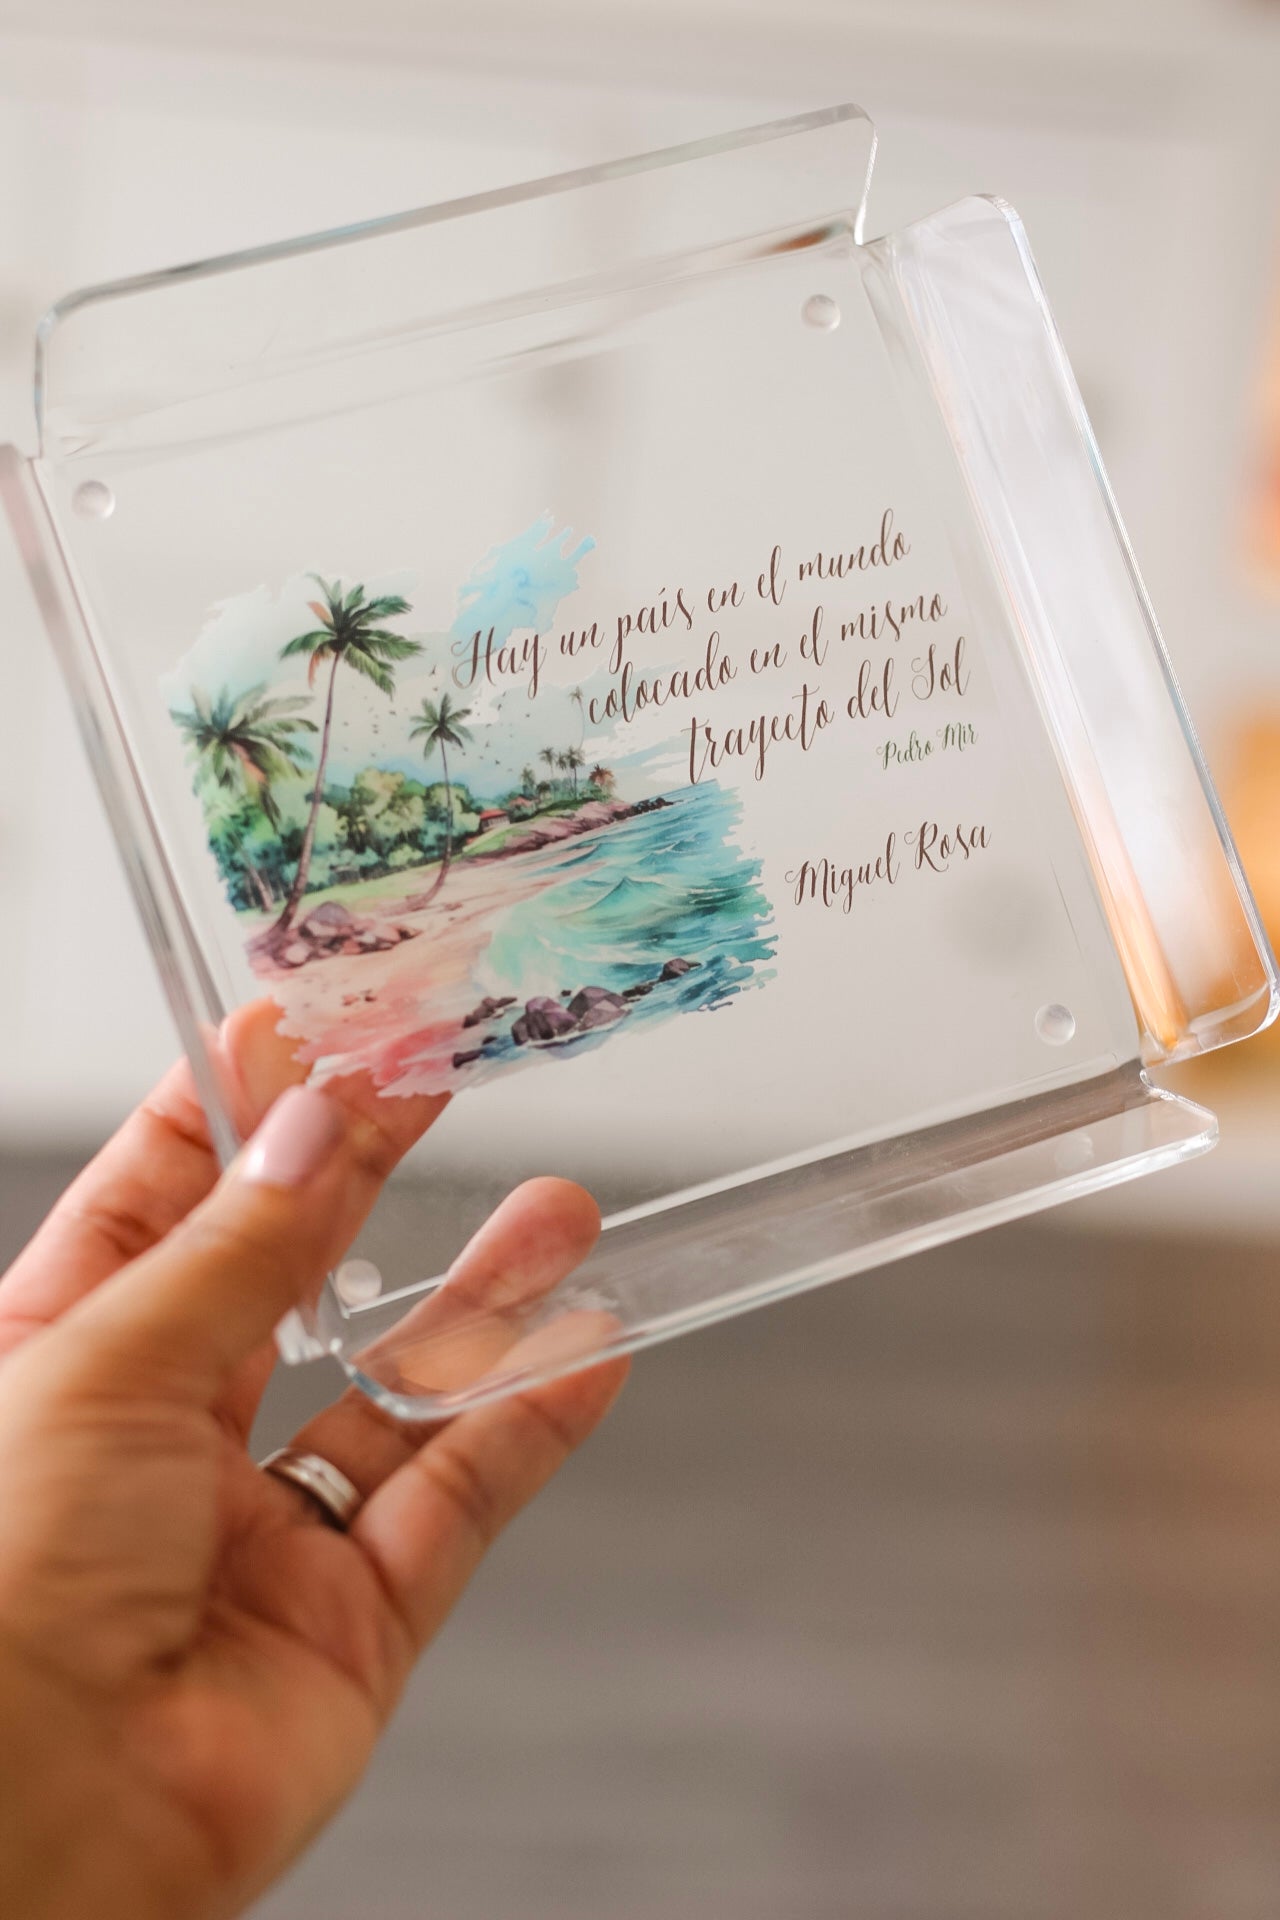 Hay un país en el mundo
colocado en el mismo
trayecto del Sol
Pedro Mir
Miguel Rosa